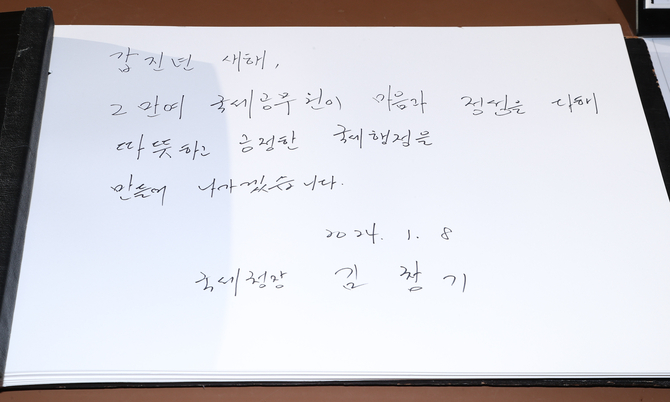 갑진년 새해,
2만여 국세공무원이 마음과 정성을 다해
따뜻하고 공정한 국세행정을
만들어 나가겠습니다.
2024. 1. 8
국세청장 김창기